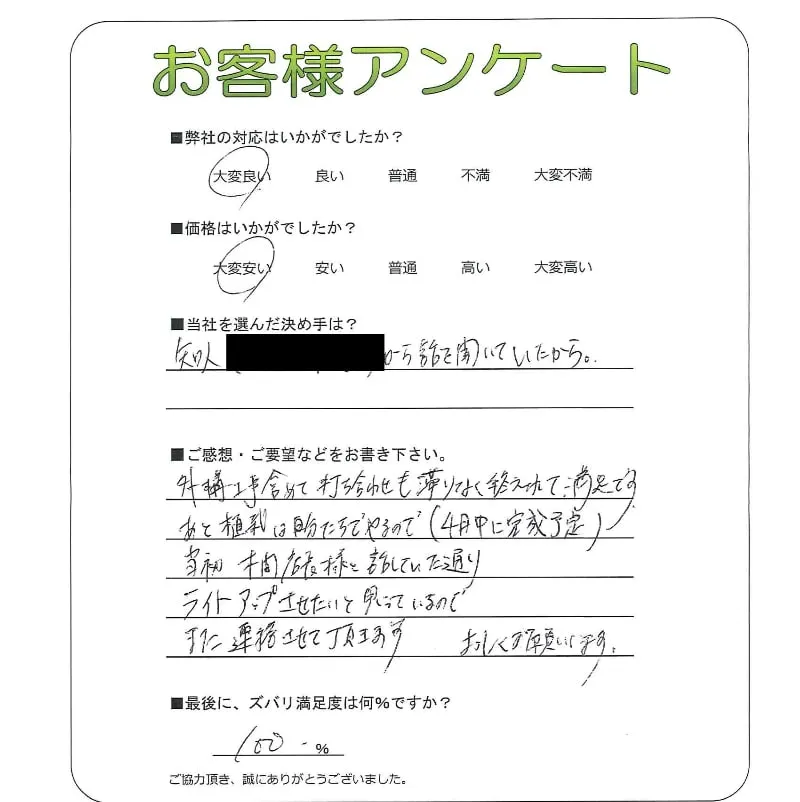 お客様アンケート
■弊社の対応はいかがでしたか？
大変良い 良い 普通 不満 大変不満
■価格はいかがでしたか？
大変安い 安い 普通 高い 大変高い
■当社を選んだ決め手は？
知人 から話を聞いていたから。
■ご感想・ご要望などをお書き下さい。
外構工事含めて打ち合わせも滞りなく終えれて満足です
あと植栽は自分たちでやるので(4月中に完成予定)
当初 本間店長様と話していた通り
ライトアップさせたいと思っているので
また連絡させて頂きます よろしくお願いします。
■最後に、ズバリ満足度は何%ですか？
100 %
ご協力頂き、誠にありがとうございました。